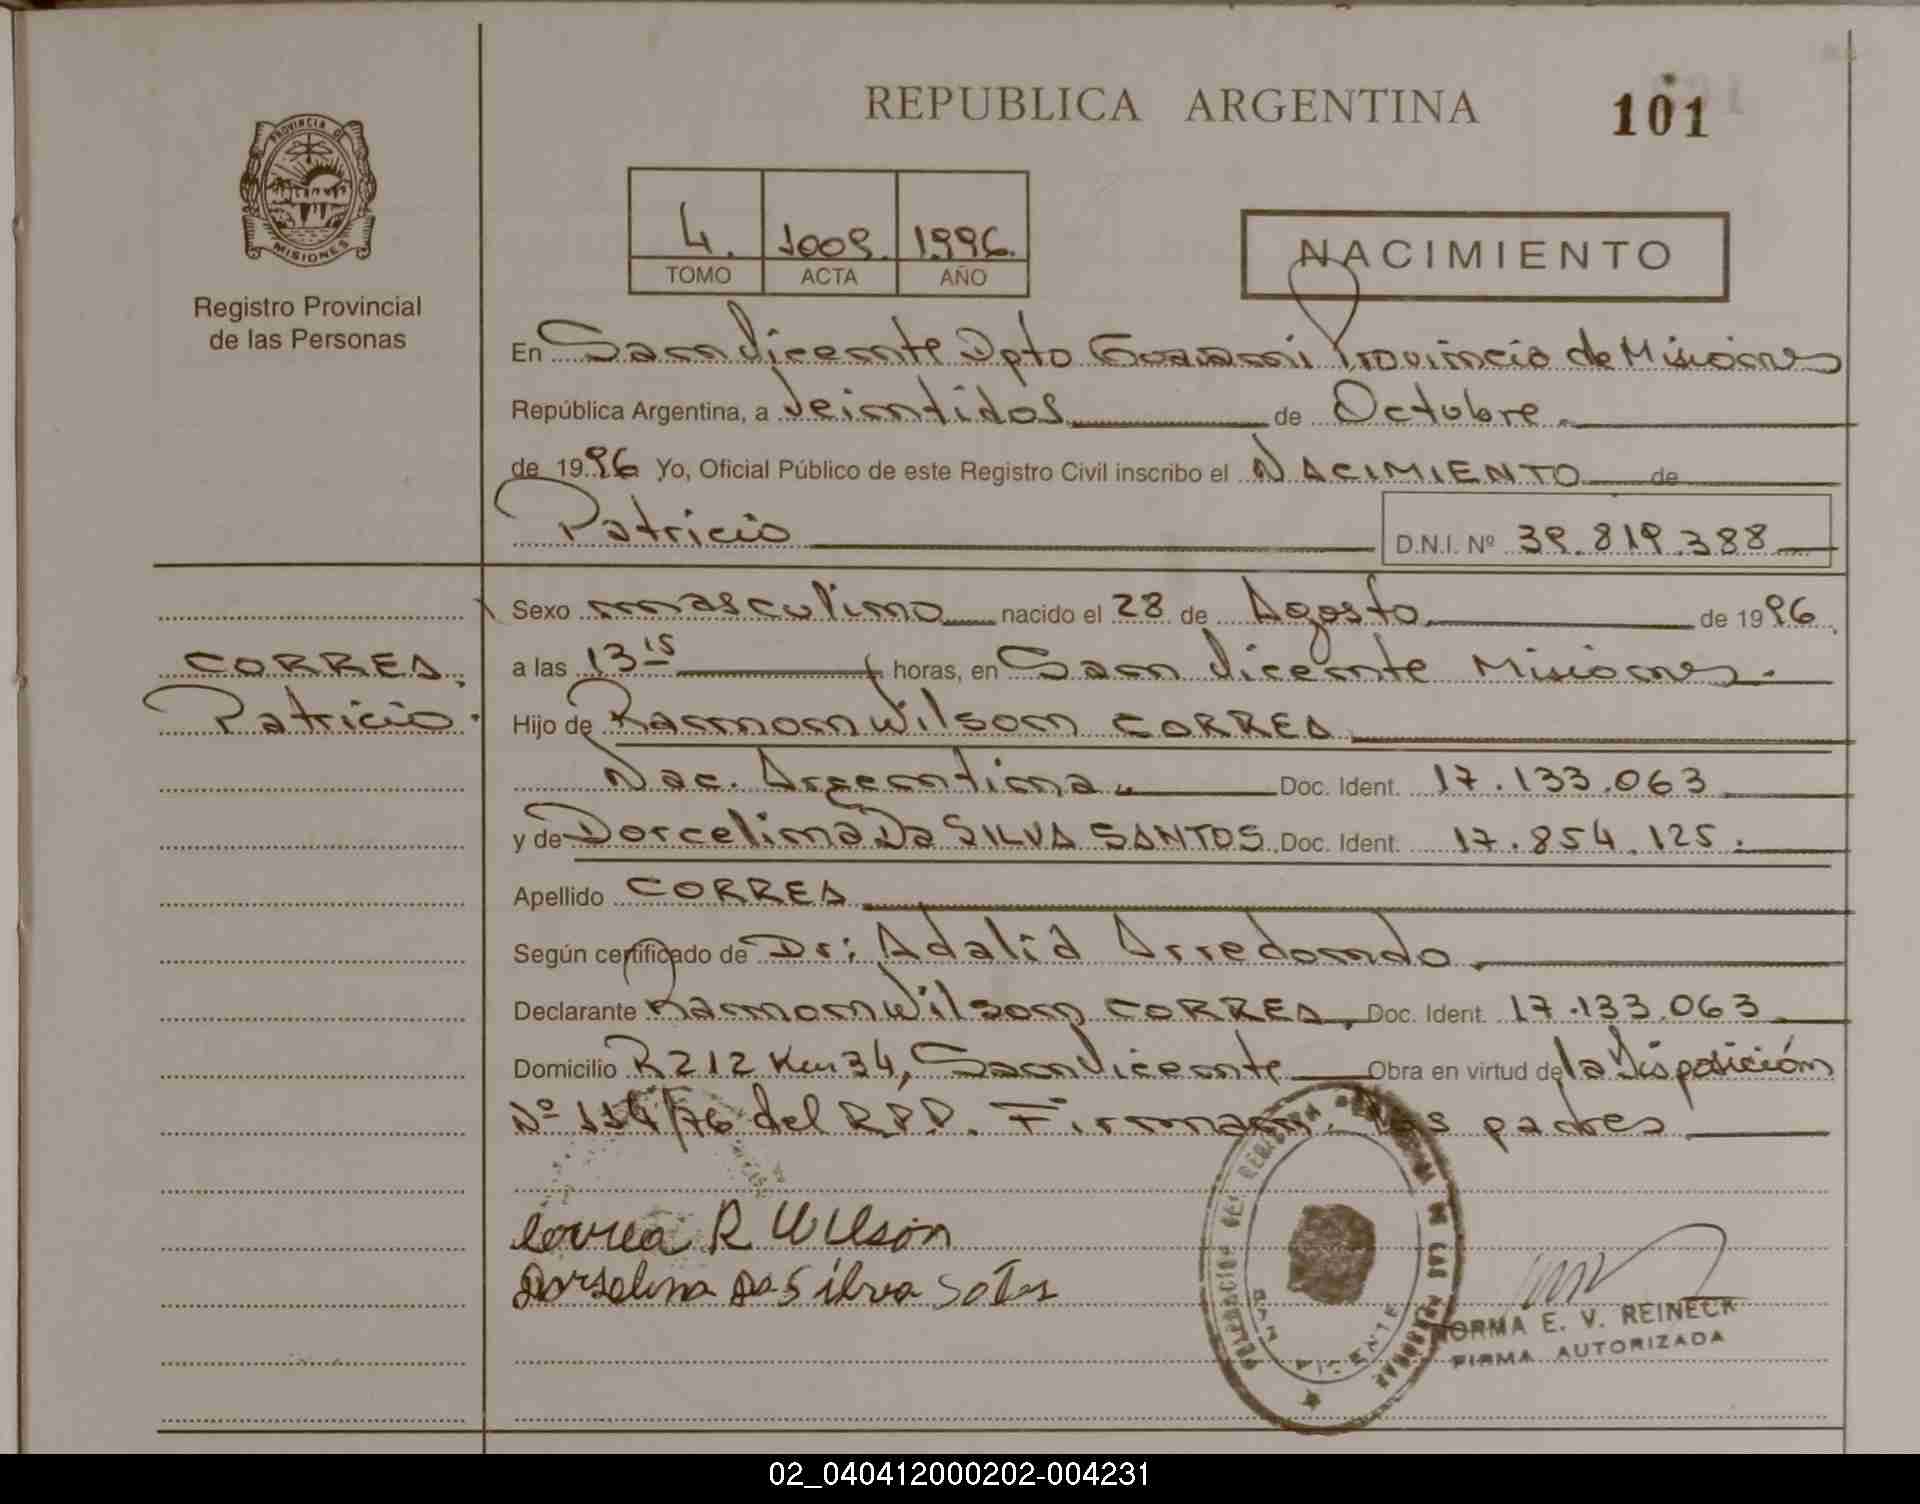 REPUBLICA ARGENTINA
101
PROVINCIA DE
MISIONES
Registro Provincial
de las Personas
4. 1009. 1996.
TOMO ACTA AÑO
NACIMIENTO
En San Vicente Dpto Guarani Provincia de Misiones
República Argentina, a Veintidos de Octubre.
de 1996 Yo, Oficial Público de este Registro Civil inscribo el NACIMIENTO de
Patricio
D.N.I. Nº 39.819.388
Sexo masculino nacido el 28 de Agosto de 1996
CORREA
Patricio.
a las 13 15 horas, en San Vicente Misiones.
Hijo de Ramon Wilson CORREA
Nac. Argentina. Doc. Ident. 17.133.063
y de Dorcelina Da SILVA SANTOS. Doc. Ident. 17.854.125.
Apellido CORREA
Según certificado de Dr: Adalid Arredondo.
Declarante Ramon Wilson CORREA. Doc. Ident. 17.133.063
Domicilio R 212 Km 34, San Vicente Obra en virtud de la Disposición
Nº 114/76 del R.P.P. Firman: los padres
Correa R Wilson
Dorselina Da Silva
DELEGACION DEL REGISTRO DE LAS PERSONAS
SAN VICENTE
NORMA E. V. REINECK
FIRMA AUTORIZADA
02_040412000202-004231